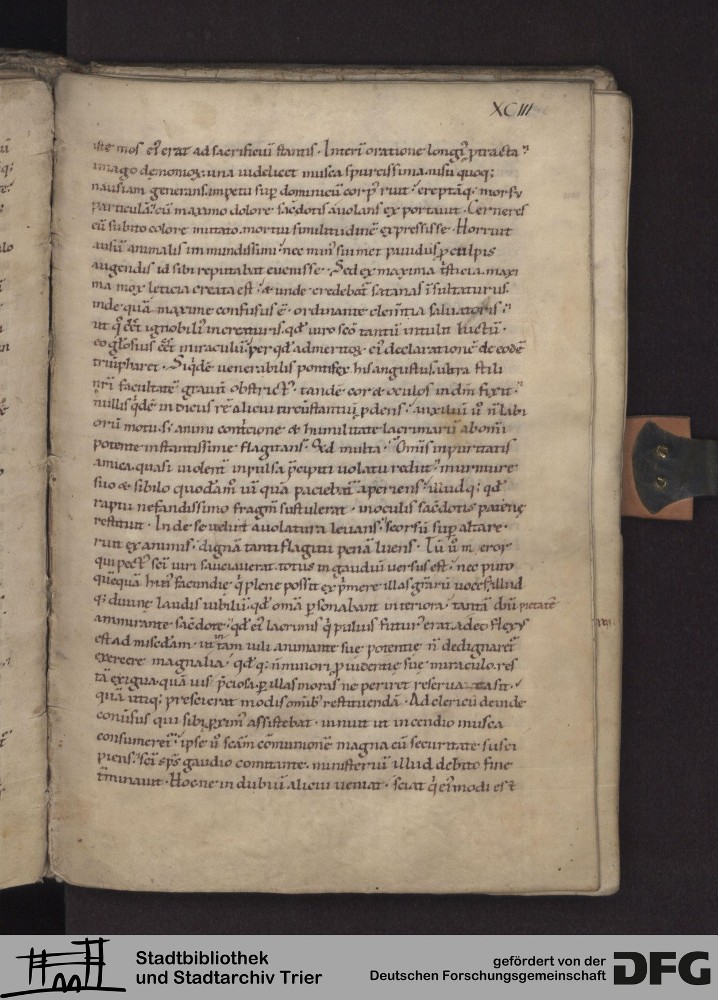 XCIII
mos ei᷒ erat ad sacrificiū stantis. Interī oratione longi᷒ ptracta
imago demonoꝝ. una uidelicet musca spurcissima. uisu quoq;
nausiam generans. impetu sup dominicū corp᷒ ruit. ereptāq; morsu
particulā. cū maximo dolore sacđotis auolans exportauit. Cerneres
eū subito colore mutato. mortui similitudinē expressisse. Horruit
ausū animalis immundissimi. nec min᷒ suimet p culpis
augendis id sibi reputabat euenisse. Sed ex maxima tsticia. maxi
ma mox leticia creata est. & unde credebat satanas īsultaturus.
inde quā maxime confusus ē. ordinante clemtia saluatoris.
ut qđ ignobili᷒ in creaturis. qđ uiro scō tantū intulit luctū.
eo gło᷒sius miraculū. per qđ ad meritoꝝ ei᷒ declarationē de eodē
triūpharet. Siqđē uenerabilis pontifex. his angustiis. ultra stili
nri facultatē grauit obstrict᷒. tandē cor & oculos in dm̄ fixit.
nullis qđē indicus rē alicui circūstantiū pdens. auxiliū ū n̄ labi
orū motu. s; animi cont̄cione & humilitate lacrimarū ab omi
potente instantissime flagitans. Sed multa. Om̄is inpuritatis
amica. quasi uiolent inpulsa pcipiti uolatu rediit. murmure
suo & sibilo quodāmō uī quā paciebat aperiens. illudq; qđ
raptu nefandissimo fragm̄ sustulerat. in oculis sacđotis patenę
restituit. Inde se uelut auolatura leuans. seorsū sup altare.
ruit exanimis. dignā tanti flagitii penā luens. Tū ū meror
qui pect᷒ scī uiri sauciauerat. totus in gaudiū uersus est. nec puto
quēquā hui᷒ facundie. q̇ plene possit expmere illas grarū uoces. illud
q; diuinę laudis iubilū. qđ om̄a psonabant interiora. tantā dni pietatē
ammirante sacđote. qđ ei᷒ lacrimis q̇ puluis futur᷒ erat. adeo flexus
est ad misedam. ut in tam uili animante suę potentię n̄ dedignaret
exercere magnalia. qđq; n̄ minori puidentię suę miraculo. res
tā exigua. quā uis pciosa. p illas moras ne periret reseruata sit.
quā utiq; prescierat modis omib᷒ restituendā. Ad clericū deinde
conuersus qui sibi pxim᷒ assistebat. innuit ut incendio musca
consumeret. ipse ū scām cōmunionē magna cū securitate susci
piens. scī sp̄s gaudio comitante. ministeriū illud debito fine
tminauit. Hoc ne in dubiū alicui ueniat. sciat q̇ ei᷒modi est
Stadtbibliothek
und Stadtarchiv Trier
gefördert von der
Deutschen Forschungsgemeinschaft
DFG